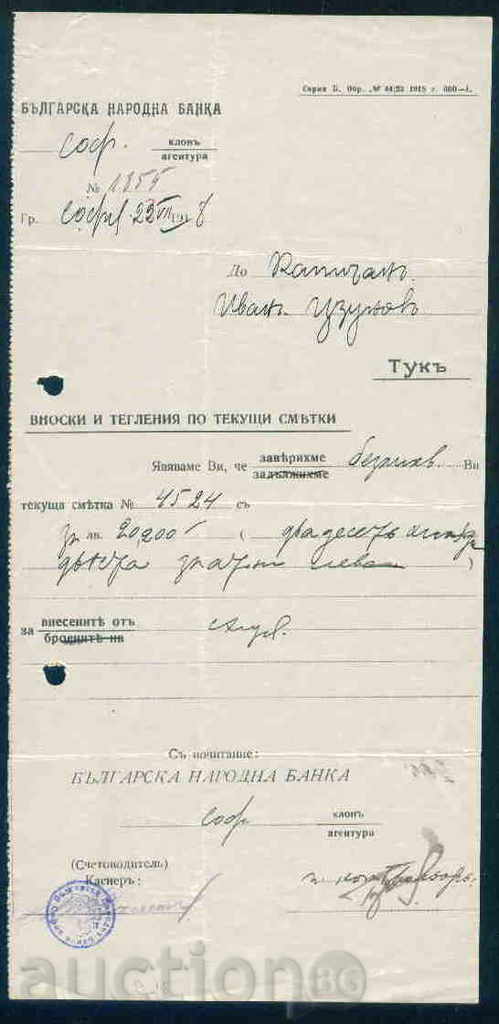 Серия Б. Обр. № 44/23 1918 г. 600—1.
БЪЛГАРСКА НАРОДНА БАНКА
Соф. клонъ
агентура
№ 1855
Гр. София 22 VII 191 8
До Капитанъ
Иванъ Узуновъ
Тукъ
ВНОСКИ И ТЕГЛЕНИЯ ПО ТЕКУЩИ СМѢТКИ
Явяваме Ви, че завѣрихме Ви
задължихме
текуща смѣтка № 4524 съ
лв. 20,200 ( двадесетъ хиляди
двѣста лева )
за внесенитѣ отъ
броенитѣ на
Съ почитание:
БЪЛГАРСКА НАРОДНА БАНКА
Соф клонъ
агентура
(Счетоводитель)
Касиеръ:
auction86